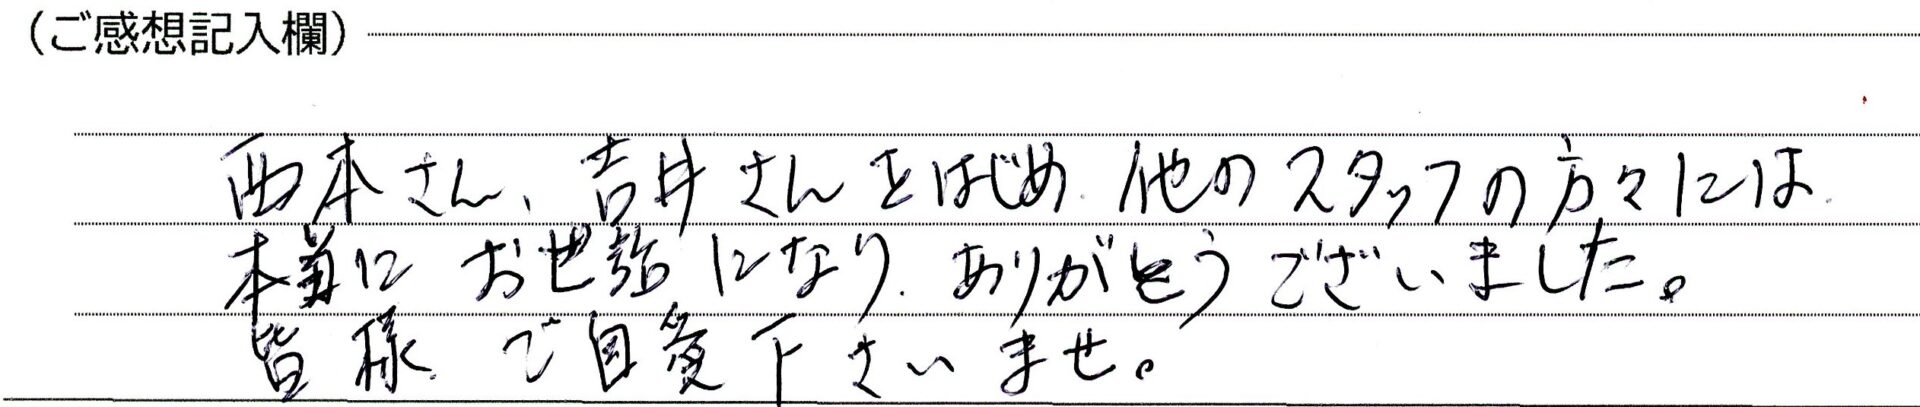 （ご感想記入欄）
西本さん、吉井さんをはじめ、他のスタッフの方々には、
本当にお世話になり、ありがとうございました。
皆様、ご自愛下さいませ。